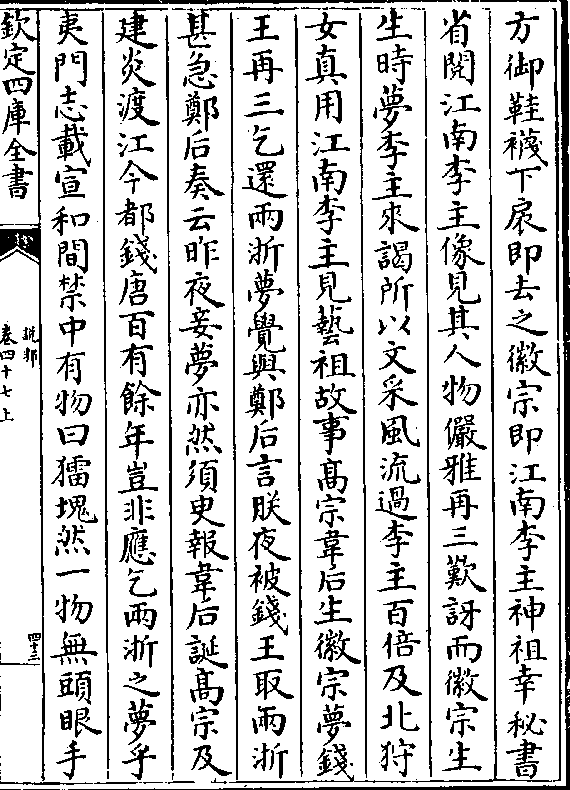 方御鞋襪下扆即去之徽宗即江南李主神祖幸秘書
省閱江南李主像見其人物儼雅再三歎訝而徽宗生
生時夢李主來謁所以文采風流過李主百倍及北狩
女真用江南李主見藝祖故事髙宗韋后生徽宗夢錢
王再三乞還兩浙夢覺與鄭后言朕夜被錢王取兩浙
甚急鄭后奏云昨夜妾夢亦然須臾報韋后誕髙宗及
建炎渡江今都錢唐百有餘年豈非應乞兩浙之夢乎
夷門志載宣和間禁中有物曰㺔塊然一物無頭眼手
欽定四庫全書
説郛
卷四十七上
四十三